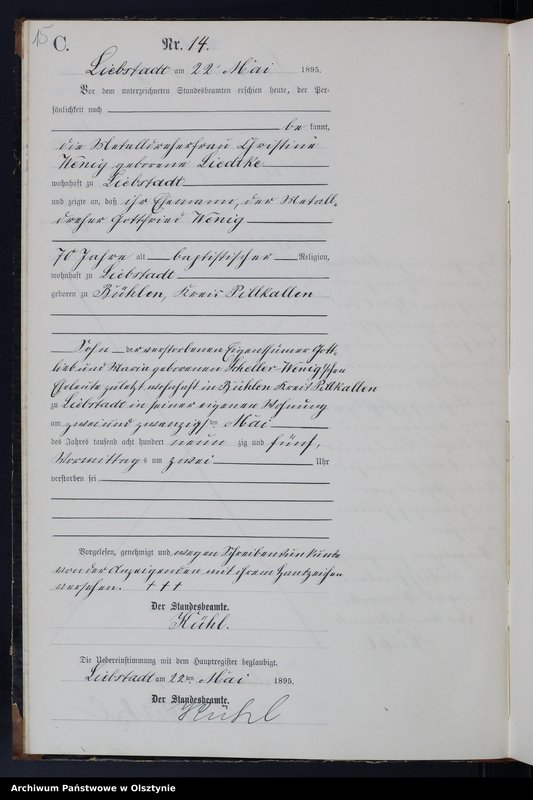 15
C. Nr. 14.
Liebstadt am 22ten Mai 1895.
Vor dem unterzeichneten Standesbeamten erschien heute, der Per-
sönlichkeit nach
be kannt,
die Metalldreherfrau Christine
Wenig geborene Liedtke
wohnhaft zu Liebstadt
und zeigte an, daß ihr Ehemann, der Metall-
dreher Gottfried Wenig
70 Jahre alt baptistischer Religion,
wohnhaft zu Liebstadt
geboren zu Bühlen, Kreis Pillkallen
Sohn der verstorbenen Eigenthümer Gott-
lieb und Maria geborenen Scheller-Wenig'schen
Eheleute zuletzt wohnhaft in Bühlen Kreis Pillkallen
zu Liebstadt in seiner eigenen Wohnung
am zwei und zwanzigsten Mai
des Jahres tausend acht hundert neun zig und fünf,
Vormittags um zwei Uhr
verstorben sei
Vorgelesen, genehmigt und wegen Schreibensunkunde
von der Anzeigenden mit ihrem Handzeichen
versehen. + + +
Der Standesbeamte.
Kühl.
Die Uebereinstimmung mit dem Hauptregister beglaubigt.
Liebstadt am 22ten Mai 1895.
Der Standesbeamte.
Kühl
Archiwum Państwowe w Olsztynie